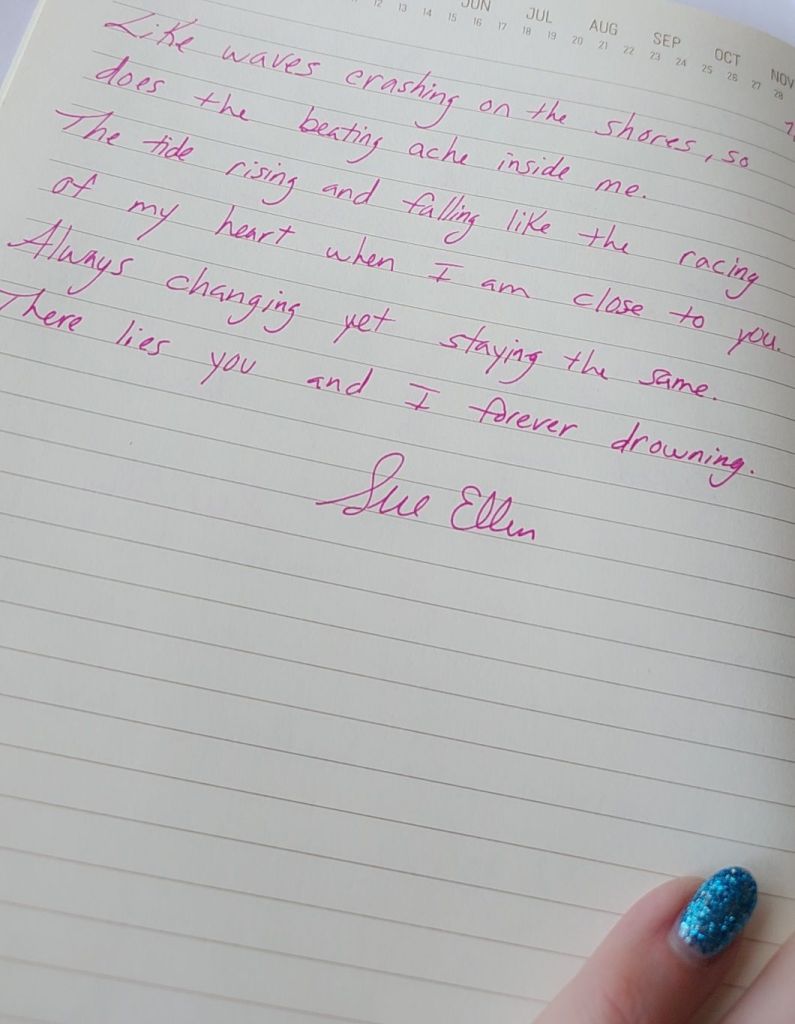 JUN JUL AUG SEP OCT NOV
12 13 14 15 16 17 18 19 20 21 22 23 24 25 26 27 28
Like waves crashing on the shores, so
does the beating ache inside me.
The tide rising and falling like the racing
of my heart when I am close to you.
Always changing yet staying the same.
There lies you and I forever drowning.
Sue Ellen